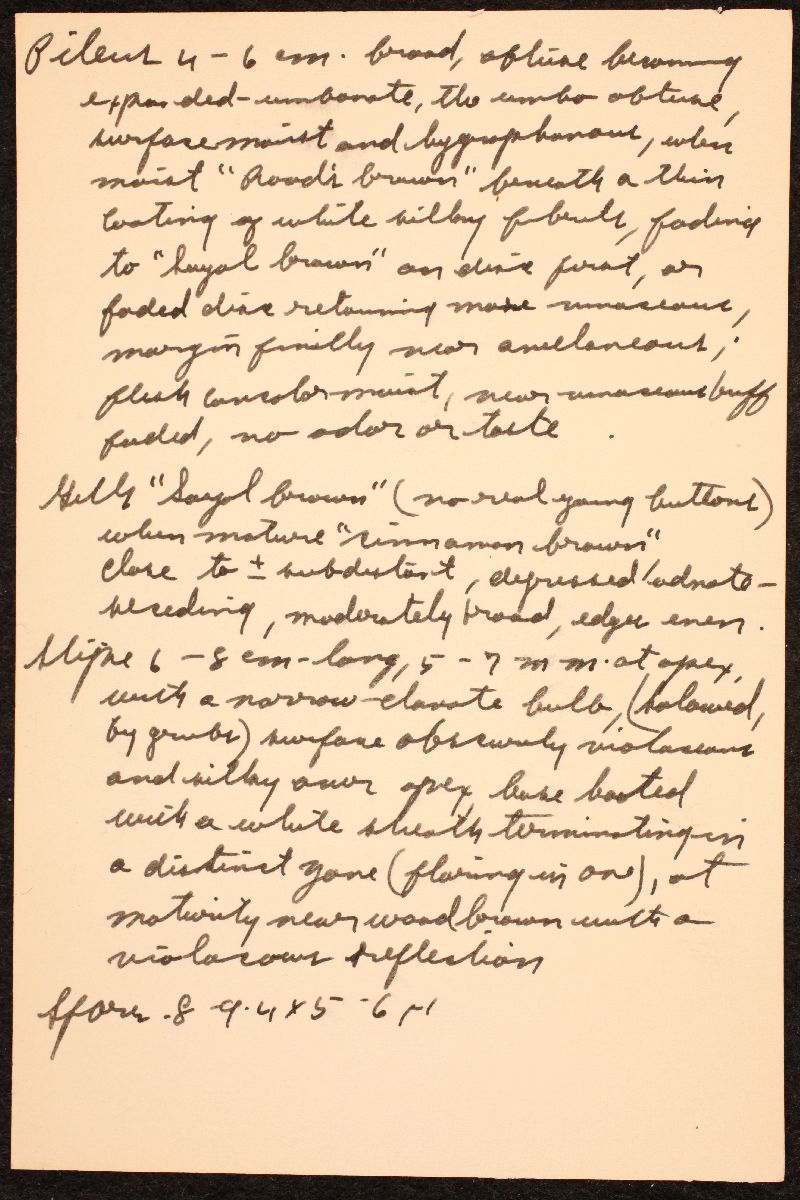 Pileus 4 - 6 cm. broad, obtuse becoming
expanded-umbonate, the umbo obtuse,
surface moist and hygrophanous, when
moist "Rood's brown" beneath a thin
coating of white silky fibrils, fading
to "Sayal brown" on disc first, or
faded disc retaining more vinaceous,
margin finilly near avellaneous;
flesh concolor moist, near vinaceous buff
faded, no odor or taste.
Gills "Sayal brown" (no real young buttons)
when mature "cinnamon brown"
close to ± subdistant, depressed/adnate-
seceding, moderately broad, edges even.
Stipe 6 - 8 cm-long, 5 - 7 mm. at apex,
with a narrow-clavate bulb, (hollowed,
by grubs) surface obscurely violaceous
and silky over apex, base booted
with a white sheath terminating in
a distinct zone (flaring in one), at
maturity near wood brown with a
violaceous reflection
Spores 8 - 9.4 x 5 - 6 μ